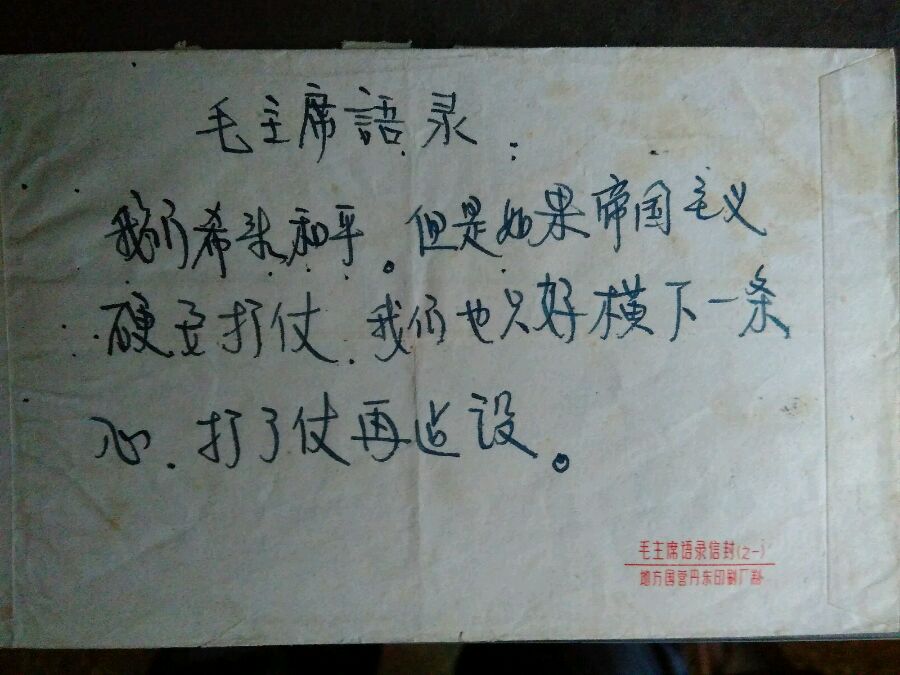 毛主席語录:
我们希求和平。但是如果帝国主义
硬要打仗.我们也只好横下一条
心.打了仗再迠设。
毛主席语录信封(之一)
地方国营丹东印刷厂制